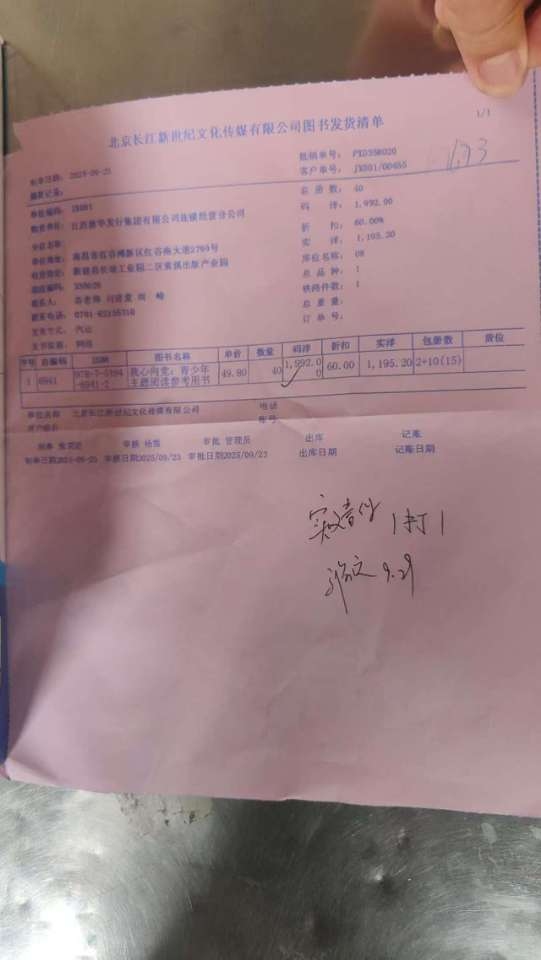 1/1
北京长江新世纪文化传媒有限公司图书发货清单
制单日期： 2025-09-23 批销单号： PXD358020
摘要记录： 客户单号： JX001/00455
单位编码： JX001 总册数： 40
收货单位： 江西新华发行集团有限公司连锁经营分公司 码 洋： 1,992.00
分店名称： 折 扣： 60.00%
单位地址： 南昌市红谷滩新区红谷南大道2799号 实 洋： 1,195.20
收货地址： 新建县长堎工业园二区 出版产业园 库位名称： 08
邮政编码： 330029 总品种： 1
联系人： 铁路件数： 1
联系电话： 0791-83195310 总重量：
发运方式： 汽运 订单号：
发书依据： 网络
序号 总编码 ISBN 图书名称 单价 数量 码洋 折扣 实洋 包册数 货位
1 6941 978-7-5354-6941-2 我心向党：青少年主题阅读参考用书 49.80 40 1,992.00 60.00 1,195.20 2+10(15)
单位名称 北京长江新世纪文化传媒有限公司 电话
开户银行 帐号
制单 审核 杨雪 审批 管理员 出库 记账
制单日期2025-09-23 审核日期2025/09/23 审批日期2025/09/23 出库日期 记账日期
实收 1打1
9.29